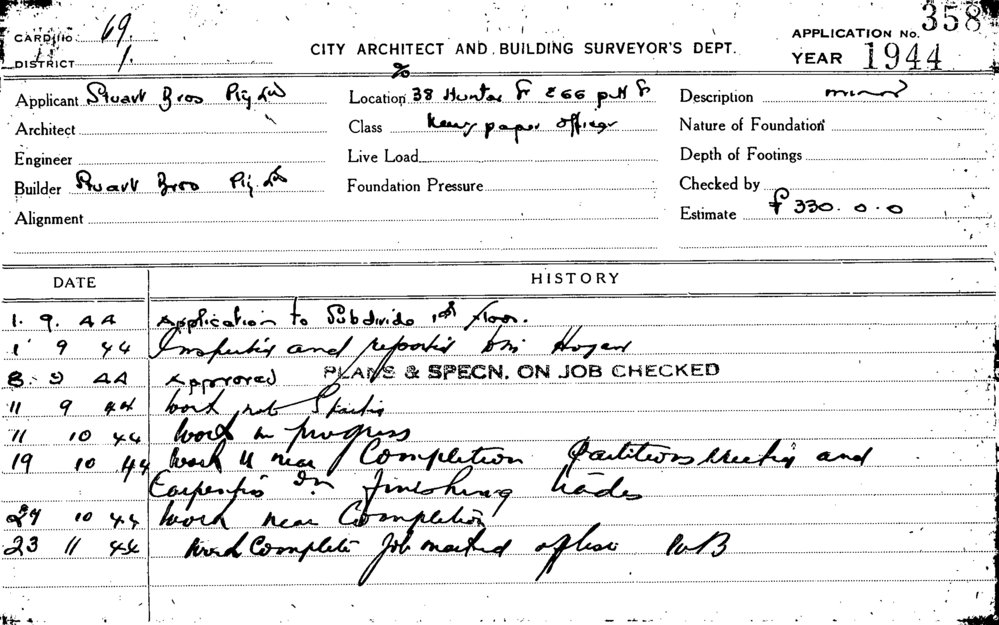 CARD NO. 69.
DISTRICT 1.
CITY ARCHITECT AND BUILDING SURVEYOR'S DEPT.
APPLICATION No. 358
YEAR 1944
Applicant Stuart Bros Pty Ltd
Location 38 Hunter St & 66 Pitt St
Description minor
Architect
Class Newspaper offices
Nature of Foundation
Engineer
Live Load
Depth of Footings
Builder Stuart Bros Pty Ltd
Foundation Pressure
Checked by
Alignment
Estimate £330.0.0
DATE HISTORY
1. 9. 44 Application to Subdivide 1st floor.
1 9 44 Inspected and reported Hogan
8. 9 44 Approved PLANS & SPECN. ON JOB CHECKED
11 9 44 Work not Started
11 10 44 Work in progress
19 10 44 Work is near Completion Partitions erected and
Carpenters finishing trades
27 10 44 Work near Completion
23 11 44 Work Complete Job marked off